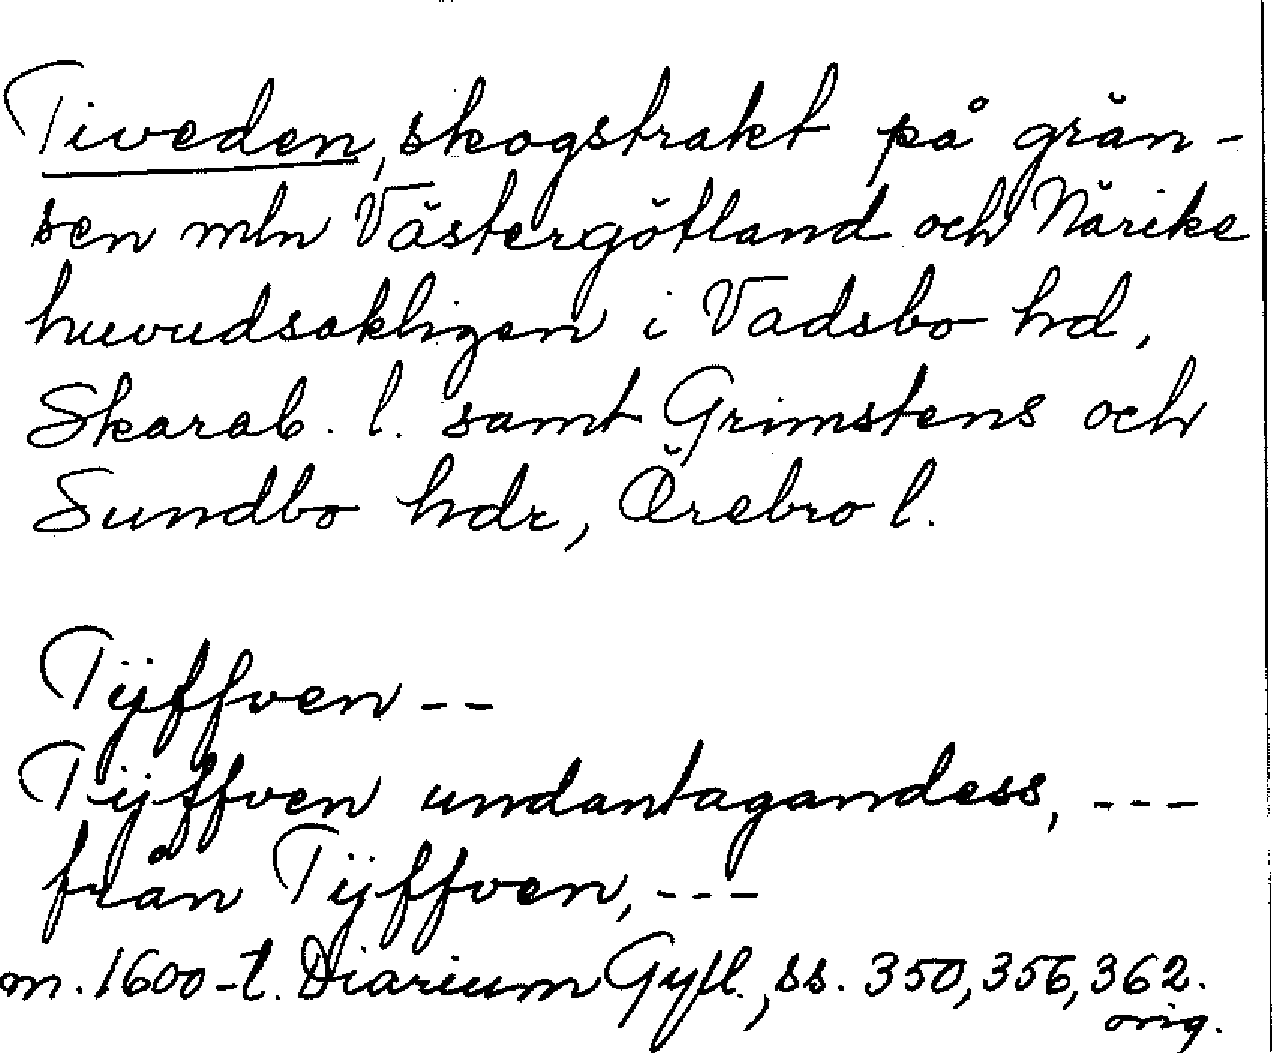 Tiveden, skogstrakt på grän-
sen mln Västergötland och Närike
huvudsakligen i Vadsbo hd,
Skarab. l. samt Grimstens och
Sundbo hdr, Örebro l.
Tijffven --
Tijffven undantagandess, ---
från Tijffven, ---
m. 1600-t. Diarium Gyll., ss. 350, 356, 362.
orig.